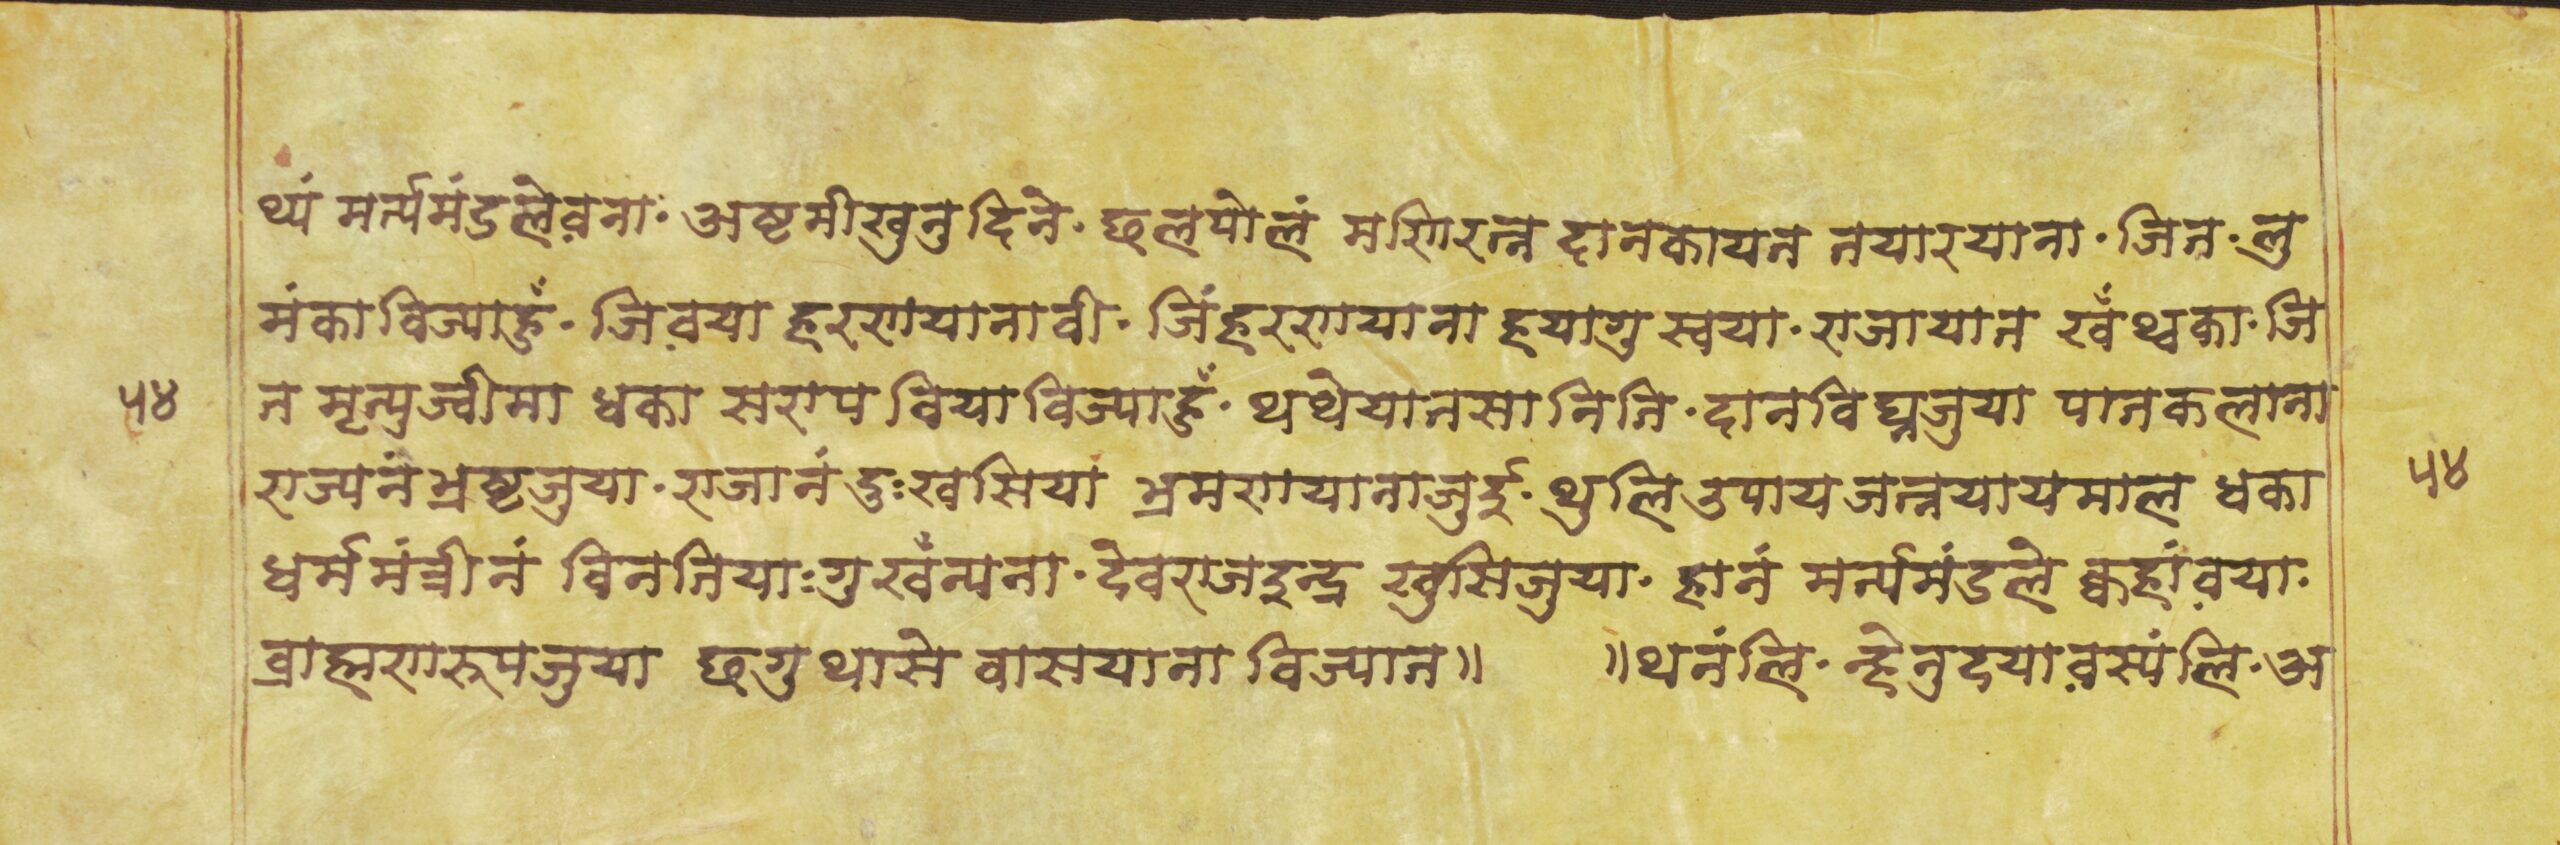 थ्यं मर्त्यमंडलेव़ना· अष्टमीखुनुदिने· छलपोलं मणिरत्न दानकायत नयारयाना· जित· लु
मंकाविज्याहुँ· जिव़या हरणयानावी· जिंहरणयाना हयागु स्वया· राजायात खँथ्वका· जि
त मृत्युज्वीमा धका सराप वियाविज्याहुँ· थथेयातसा निति· दानविघ्नजुया पातकलाना
राज्यनंभ्रष्टजुया· राजानं दुःखसिया भ्रमणयानाजुई· थुलिउपायजत्नयायमाल धका
धर्ममंत्रीनं विनतियाःगु खँन्यना· देवराजइन्द्र खुसिजुया· हानं मर्त्यमंडले क्वहांव़या·
ब्राह्मणरूपजुया छगु थासे वासयाना विज्यात॥ ॥थनंलि· न्हिनुदयाव़स्यंलि· अ
५४
५४